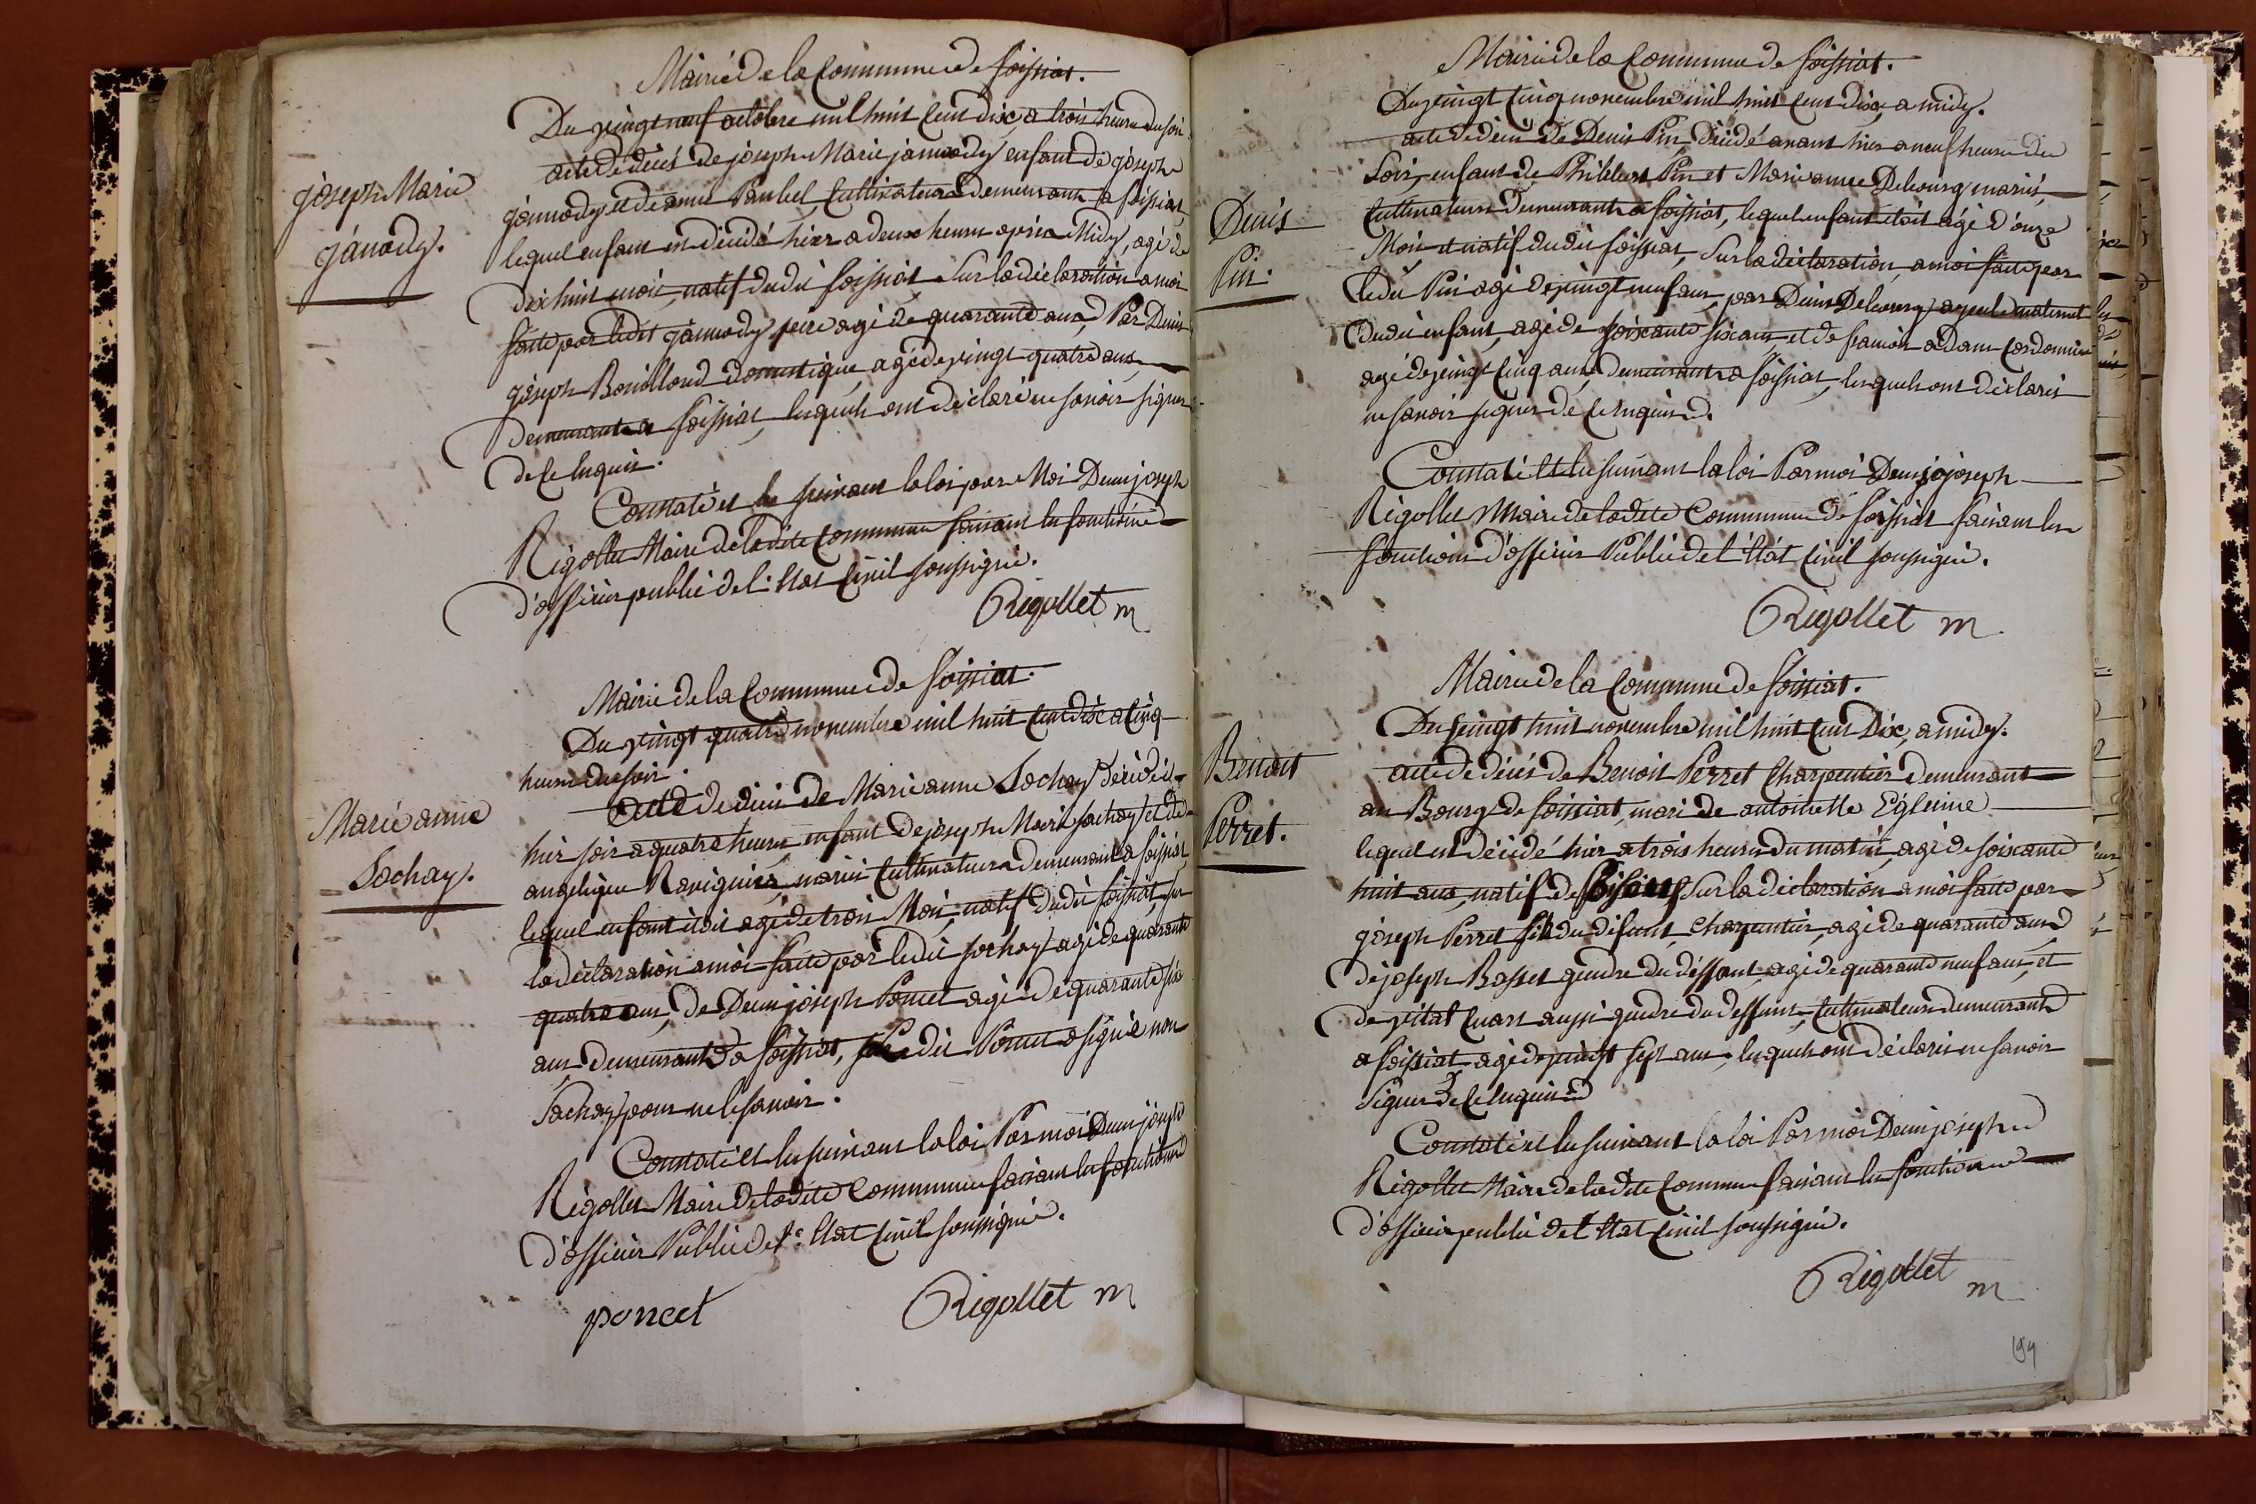 Mairie de la Commune de foissiat.
Du vingt neuf octobre mil huit cent dix, a trois heures du soir
acte de décés de joseph Marie janody enfant de joseph
joseph Marie
janody.
janody et de anne Paubel, Cultivateurs demeurant a foissiat,
lequel enfant est décédé hier a deux heures apries Midy, agé de
dix huit mois, natif dudit foissiat Sur la déclaration a moi
faite par ledit janody pere agé de quarante ans, Par Denis
joseph Bouilloud domestique, agé de vingt quatre ans,
demeurants a foissiat, lesquels ont déclaré ne savoir signer
de ce Enquis.
Constaté et lu suivant la loi par Moi Denis joseph
Rigollet Maire de ladite Commune faisant les fonctions
d'officier public de l'Etat Civil soussigné.
Rigollet m
Mairie de la Commune de foissiat.
Du vingt quatre novembre mil huit cent dix a Cinq
heures du soir.
acte de décés de Marie anne Sochay décédé
Marie anne
Sochay.
hier soir a quatre heures enfant de joseph Marie Sochay et de
angelique Raviguier, mariés Cultivateurs demeurant a foissiat,
lequel enfant étoit agé de trois Mois, natif dudit foissiat, sur
la déclaration a moi faite par ledit Sochay agé de quarante
quatre ans, de Denis joseph Poncet agé de quarante six
ans demeurants a foissiat, ledit Poncet a signé non
Sochay pour ne le savoir.
Constaté et lu suivant la loi Par moi Denis joseph
Rigollet Maire de ladite Commune faisant les fonctions
d'officier Public de l'Etat Civil soussigné.
poncet Rigollet m
Mairie de la Commune de foissiat.
Du vingt Cinq novembre mil huit Cent dix, a midy.
acte de décés de Denis Pin, décédé avant hier a neuf heures du
Soir, enfant de Philibert Pin et Marie anne Debourg mariés,
Denis
Pin.
Cultivateurs demeurants a foissiat, lequel enfant étoit agé d'onze
Mois et natif dudit foissiat, Sur la déclaration, a moi faite par
ledit Pin agé de vingt neuf ans, par Denis Debourg ayeul maternel
dudit enfant, agé de soixante six ans et de françois adam Cordonnier
agé de vingt Cinq ans, demeurants a foissiat, lesquels ont déclarés
ne savoir signer de ce Enquis.
Constaté et lu suivant la loi Par moi Denis joseph
Rigollet Maire de ladite Commune de foissiat faisant les
fonctions d'officier Public de l'Etat Civil soussigné.
Rigollet m
Mairie de la Commune de foissiat.
Du vingt huit novembre mil huit Cent Dix, a midy.
Benoit
Perret.
acte de décés de Benoit Perret Charpentier demeurant
au Bourg de foissiat, mari de antoinette Egleine
lequel est décédé hier a trois heures du matin, agé de soixante
huit ans, natif de foissiat Sur la déclaration a moi faite par
joseph Perret fils du défunt, Charpentier, agé de quarante ans
de joseph Basset gendre du deffunt, agé de quarante neuf ans, et
de vital Cuart aussi gendre du deffunt, Cultivateurs demeurant
a foissiat agé de vingt sept ans, lesquels ont déclaré ne savoir
signer de ce Enquis
Constaté et lu suivant la loi Par moi Denis joseph
Rigollet Maire de ladite Commune faisant les fonctions
d'officier public de l'Etat Civil soussigné.
Rigollet m